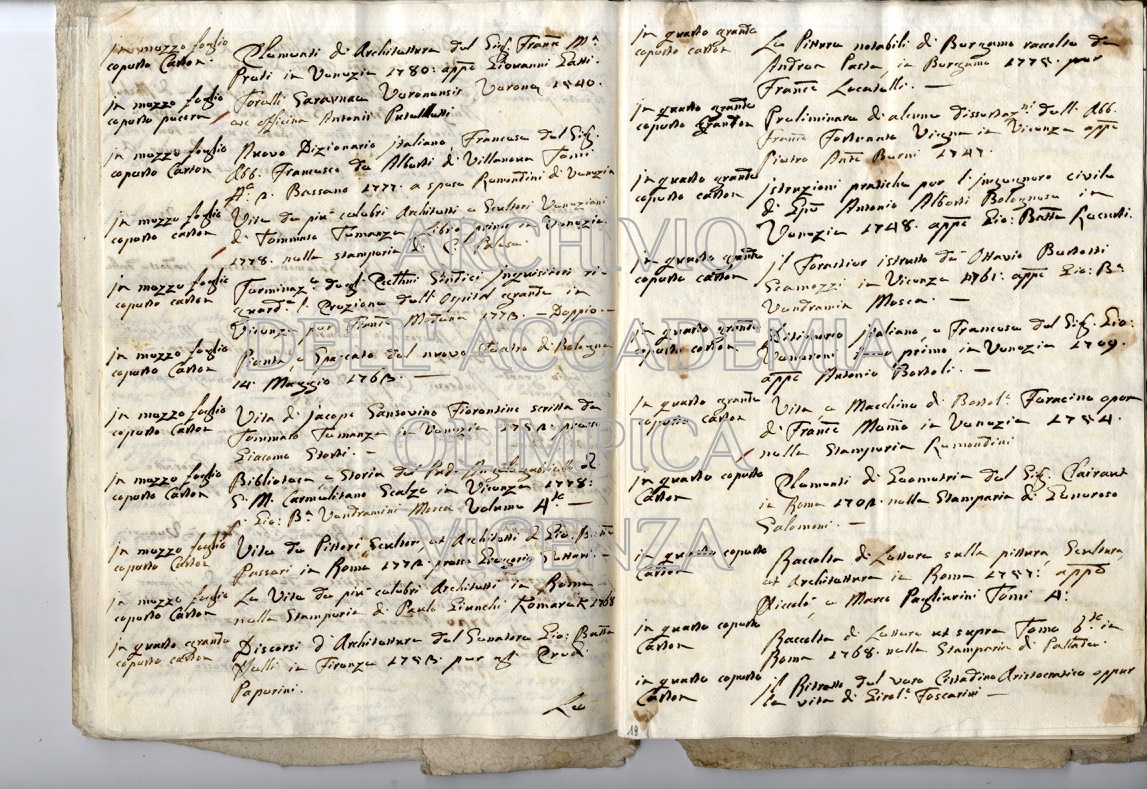 in mezzo foglio
coperto Carton.
Elementi di Architettura del Sig.r Franc.o M.a
Preti in Venezia 1780: app.o Giovanni Gatti.
in mezzo foglio
coperto pecora
Torelli Saraynae Veronensis Verona 1540.
ex officina Antonii Putelleti
in mezzo foglio
coperto Carton
Nuovo Dizionario italiano, Francese del Sig.r
Abb. Francesco de Alberti di Villanova Tomi
Bassano 1777. a spese Remondini di Venezia
in mezzo foglio
coperto carton
Vite de più celebri Architetti e Scultori Veneziani
di Tommaso Temanza Libro primo in Venezia.
1778. nella stamperia di C. Palese.
in mezzo foglio
coperto carton
Terminaz.e degl. Eccll.mi Sindici Inquisitori ri-
guard.te l'Erezione dell'Ospital grande in
Vicenza per Franc.o Modena 1773. - Doppio. -
in mezzo foglio
coperto Carton
Pianta e Spaccato del nuovo Teatro di Bologna
14. Maggio 1763. -
in mezzo foglio
coperto Carton
Vita di Jacopo Sansovino Fiorentino scritta da
Tommaso Temanza in Venezia 1752. presso
Giacomo Storti. -
in mezzo foglio
coperto Carton
Biblioteca e Storia
S. M. Carmelitano Scalzo in Vicenza 1778:
p. Gio: B.a Vendramini Mosca Volume 4.te -
in mezzo foglio
coperto Carton
Vite de Pittori Scultori, et Architetti di Gio. Batta
Passari in Roma 1772. presso Gregorio Settari. -
in mezzo foglio
coperto Carton
Le Vite de più celebri Architetti in Roma
nella Stamperia di Paolo Giunchi Komarek 1768
in quarto grande
coperto carton
Discorsi d'Architettura del Senatore Gio: Batta
Nelli in Firenze 1753. per gli Eredi
Paperini.
Le
in quarto grande
coperto carton
Le Pitture notabili di Bergamo raccolte da
Andrea Pasta, in Bergamo 1775. per
Franc.o Locatelli. -
in quarto grande
coperto Carton
Preliminare di alcune dissertaz.ni dell'Abb.
Franc.o Fortunato Vigna in Vicenza app.o
Pietro Ant.o Berni 1747.
in quarto grande
coperto carton
istruzioni pratiche per l'ingegnero civile
di Gius. Antonio Alberti Bolognese in
Venezia 1748. app.o Gio: Batta Recurti.
in quarto grande
coperto carton
il Forestier istrutto da Ottavio Bertotti
Scamozzi in Vicenza 1761: app.o Gio: B.a
Vendramin Mosca. -
in quarto grande
coperto carton
Ditionario Italiano, e Francese del Sig.r Gio:
Veneroni Tomo primo in Venezia 1709.
app.o Antonio Bortoli. -
in quarto grande
coperto carton
Vita e Macchine di Bortol.o Feracino opera
di Franc.o Memo in Venezia 1754.
nella Stamperia Remondini
in quarto coperto
Carton
Elementi di Geometria del Sig.r Clairaut
in Roma nella Stamperia di Generoso
Salomoni. -
in quarto coperto
Carton
Raccolta di Lettere sulla pittura, Scultura,
et Architettura in Roma 1757: app.o
Niccolò e Marco Pagliarini Tomi 4:
in quarto coperto
Carton
Raccolta di Lettere ut supra Tomo 6.to in
Roma 1768. nella Stamperia di Pallade.
in quarto coperto
Carton
il Ritratto del vero Cittadino Aristocratico oppur
la vita di Girol.o Foscarini -
18
ARCHIVIO
DELL'ACCADEMIA
OLIMPICA
VICENZA